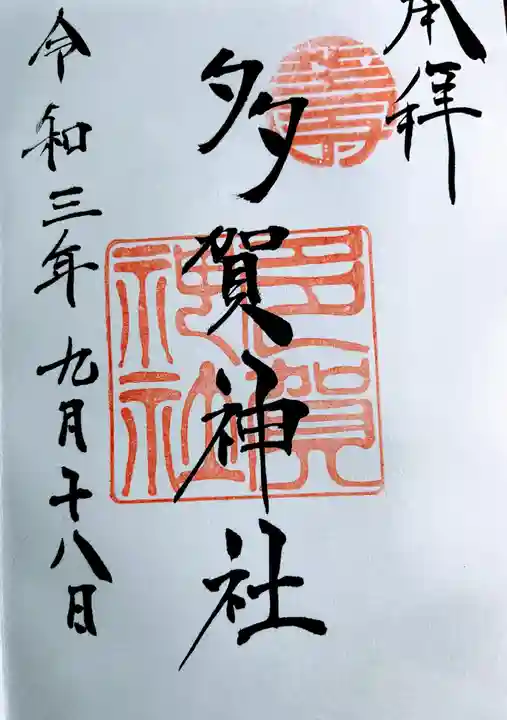 奉拝
壽
多賀神社
多賀
神社
令和三年九月十八日